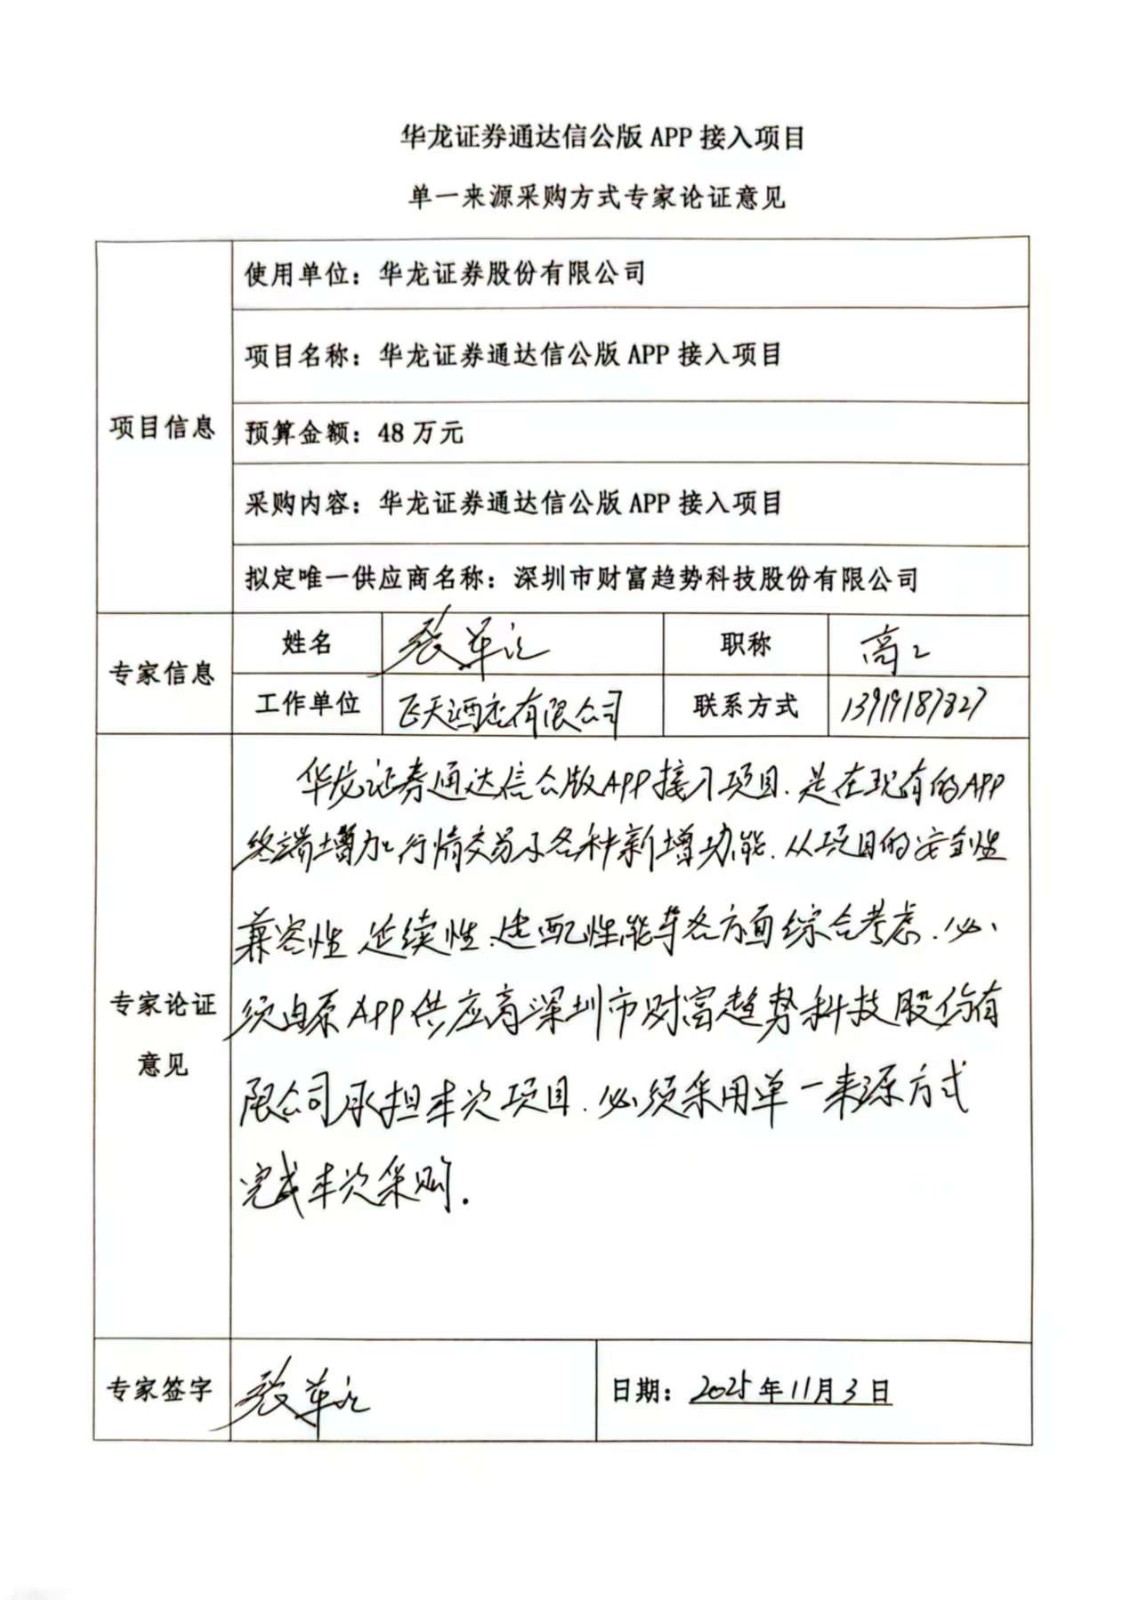 华龙证券通达信公版 APP 接入项目
单一来源采购方式专家论证意见
项目信息
使用单位：华龙证券股份有限公司
项目名称：华龙证券通达信公版 APP 接入项目
预算金额：48 万元
采购内容：华龙证券通达信公版 APP 接入项目
拟定唯一供应商名称：深圳市财富趋势科技股份有限公司
专家信息
姓名 张军 职称 高工
工作单位 飞天酒店有限公司 联系方式 13919187827
专家论证意见
华龙证券通达信公版APP接入项目.是在现有的APP
终端增加行情交易及各种新增功能.从项目的安全性
兼容性 延续性、适配性能等各方面综合考虑.必
须由原APP供应商深圳市财富趋势科技股份有
限公司承担本次项目.必须采用单一来源方式
完成本次采购.
专家签字 张军 日期：2025年11月3日